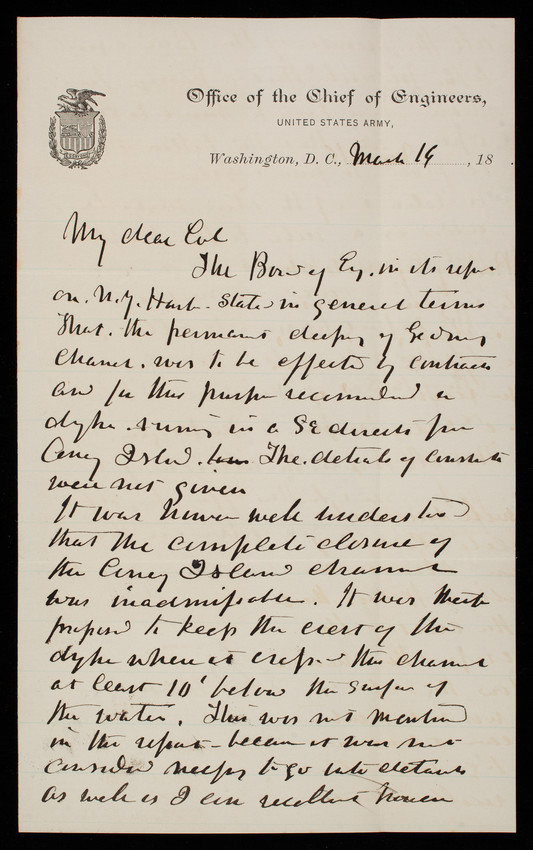 Office of the Chief of Engineers,
UNITED STATES ARMY,
Washington, D. C., March 19, 18 .
My dear Col
The Bord of Eng. in its repor
on N.Y. Harb. State in general terms
that the permanent deepng of Gedney
channel was to be effected by contracti
and for this purpose recommended a
dyke runnig in a SE directi from
Coney Island. The details of construct
were not given
It was however well understood
that the complete closure of
the Coney Island channel
was inadmissable. It was therefo
proposed to keep the crest of the
dyke where it crossed this channel
at least 10' below the surface of
the water. This was not mentiond
in the report because it was not
considered necessy to go into details
as well as I can recollect however